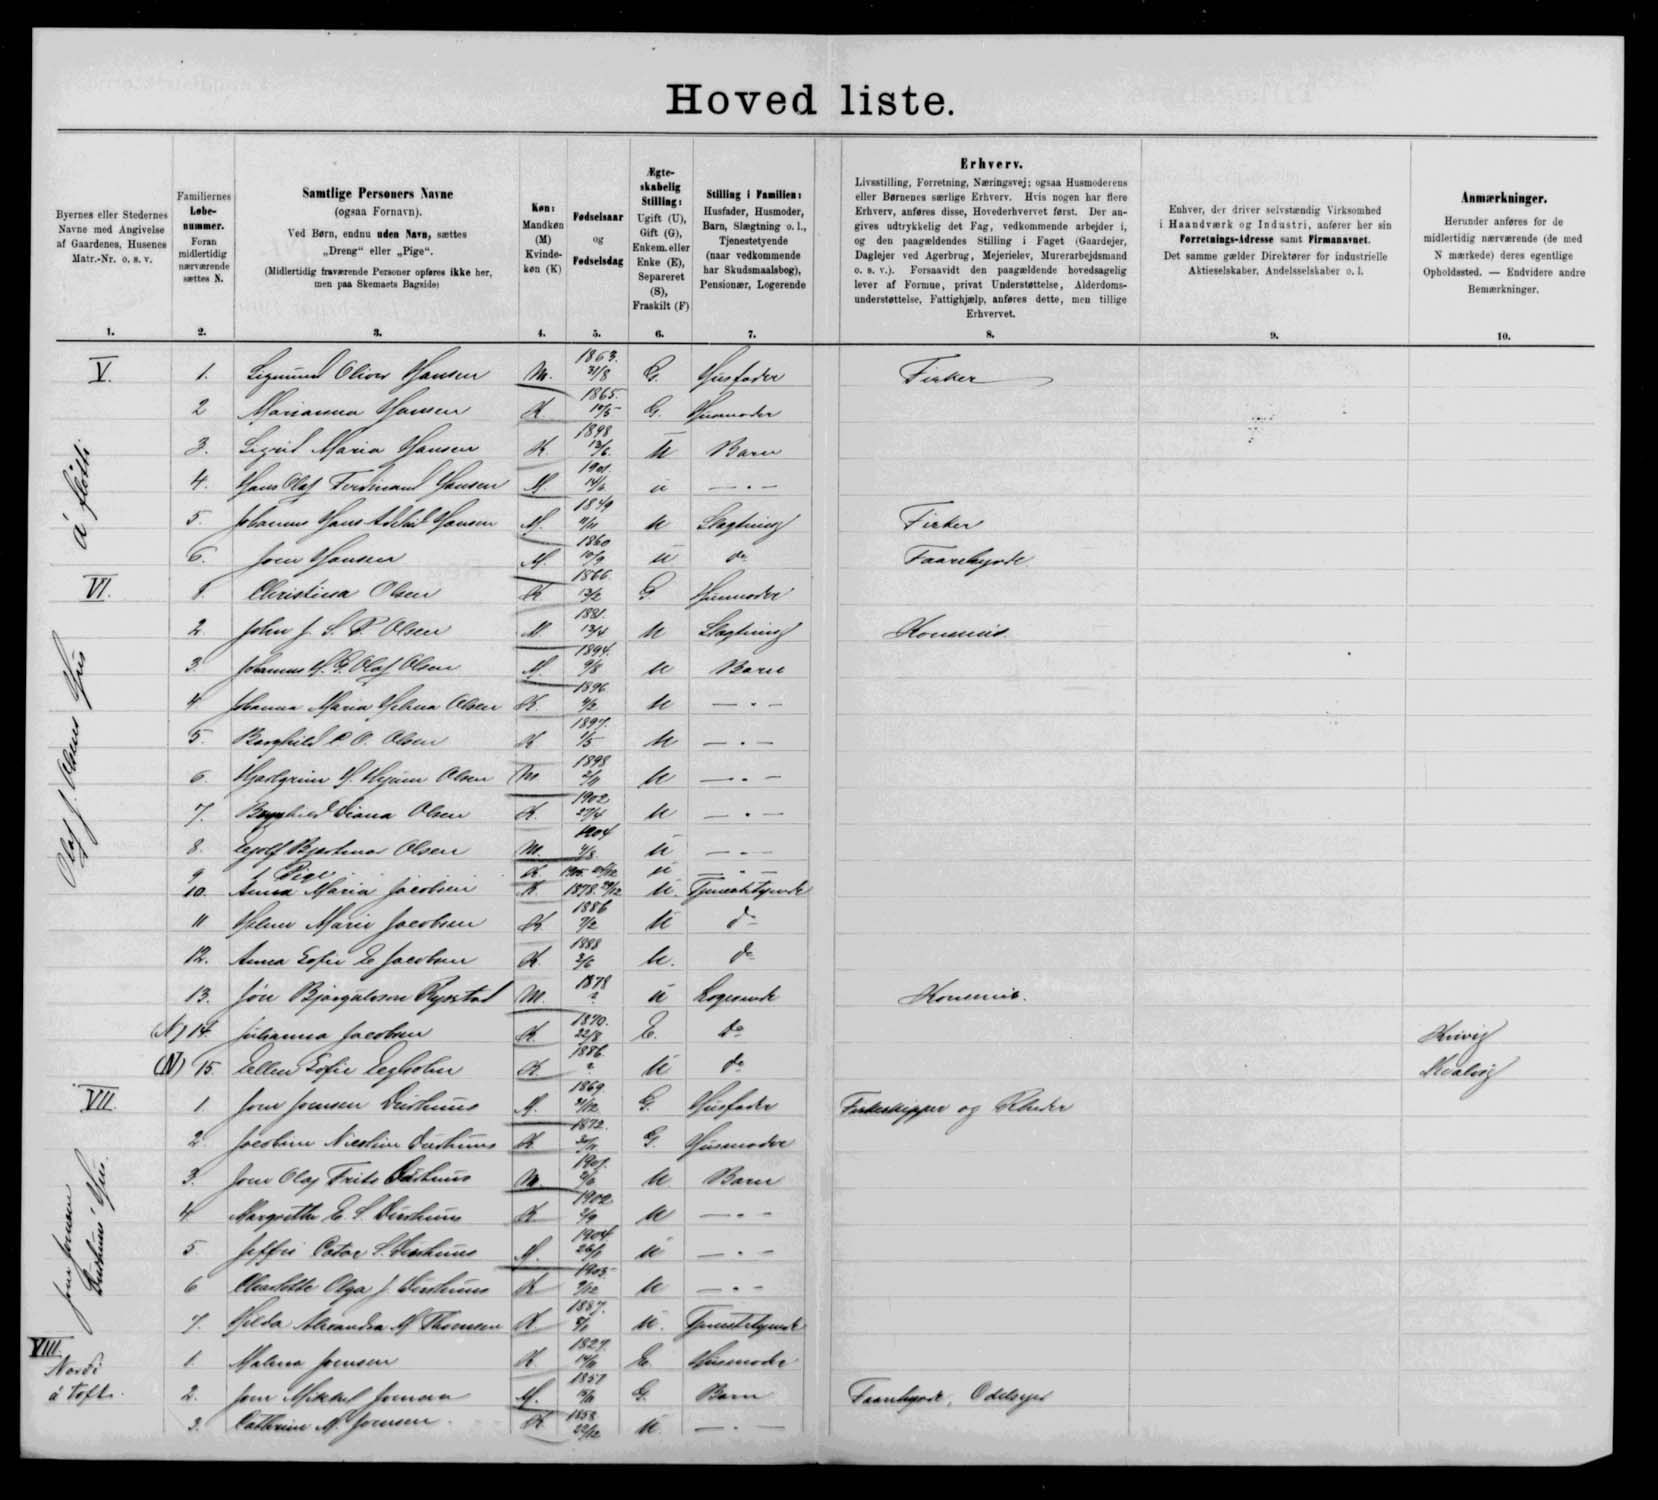 Hoved liste.
Byernes eller Stedernes
Navne med Angivelse
af Gaardenes, Husenes
Matr.-Nr. o. s. v.
1.
Familiernes
Løbe-
nummer.
Foran
midlertidig
nærværende
sættes N.
2.
Samtlige Personers Navne
(ogsaa Fornavn).
Ved Børn, endnu uden Navn, sættes
„Dreng“ eller „Pige“.
(Midlertidig fraværende Personer opføres ikke her,
men paa Skemaets Bagside)
3.
Køn:
Mandkøn
(M)
Kvinde-
køn (K)
4.
Fødselsaar
og
Fødselsdag
5.
Ægte-
skabelig
Stilling:
Ugift (U),
Gift (G),
Enkem. eller
Enke (E),
Separeret
(S),
Fraskilt (F)
6.
Stilling i Familien:
Husfader, Husmoder,
Barn, Slægtning o. l.,
Tjenestetyende
(naar vedkommende
har Skudsmaalsbog),
Pensionær, Logerende
7.
Erhverv.
Livsstilling, Forretning, Næringsvej; ogsaa Husmoderens
eller Børnenes særlige Erhverv. Hvis nogen har flere
Erhverv, anføres disse, Hovederhvervet først. Der an-
gives udtrykkelig det Fag, vedkommende arbejder i,
og den paagældendes Stilling i Faget (Gaardejer,
Daglejer ved Agerbrug, Mejerielev, Murerarbejdsmand
o. s. v.). Forsaavidt den paagældende hovedsagelig
lever af Formue, privat Understøttelse, Alderdoms-
understøttelse, Fattighjælp, anføres dette, men tillige
Erhvervet.
8.
Enhver, der driver selvstændig Virksomhed
i Haandværk og Industri, anfører her sin
Forretnings-Adresse samt Firmanavnet.
Det samme gælder Direktører for industrielle
Aktieselskaber, Andelsselskaber o. l.
9.
Anmærkninger.
Herunder anføres for de
midlertidig nærværende (de med
N mærkede) deres egentlige
Opholdssted. — Endvidere andre
Bemærkninger.
10.
V. 1. Sigmund Oliver Hansen M. 1863. 31/8 G. Husfader Fisker
2 Marianna Hansen K 1865. G. Husmoder
3. Sigrid Maria Hansen K. 1898 13/6 U Barn
á fløtti 4. Hans Olaf Ferdinand Hansen M 1901. 14/6 U — " —
5. Johannes Hans Hansen M. 1849 11/11 U Slægtning Fisker
6. Joen Hansen M. 1860 10/9 U do Faarehyrde
VI. 1. Christina Olsen K 1866. 13/2 G Husmoder
2 John J. S. P. Olsen M 1881. 13/4 U Slægtning
3 Johannes H. G. Olaf Olsen M. 1894. 9/8 U Barn
Olaf J. Olsens Hus 4 Johanna Maria Helena Olsen K. 1896 U — " —
5. Borghild P. O. Olsen K 1897. 1/5 U — " —
6. Olsen M 1898 2/11 U — " —
7. Diana Olsen K. 1902 27/4 U — " —
8. Olsen M. 1904 4/8 U — " —
9 Pige K 1905 U — " —
10. Anna Maria Jacobsen K 1878. 29/12 U. Tjenestetyende
11 Helene Marie Jacobsen K 1886 7/2 U do
12. Anna Sofie E Jacobsen K. 1888 3/6 U. do
13. Jón Bjorgulvson Rysstad M. 1878 ? U Logerende
(N) 14. Johanna Jacobsen K. 1870. 22/8 E. do Kvivig
(N) 15. Ellen Sofie Egholm K. 1886. ? U do Kvalvig
VII. 1. Joen Joensen Dúrhuus M. 1869. 31/12 G. Husfader Fiskeskipper og Rheder
2. Jacobine Nicoline Dúrhuus K. 1872. G. Husmoder
3. Joen Olaf Frits Dúrhuus M. 1901. U Barn
Joen Joensen Dúrhuus' Hus. 4 Margrethe E. S. Dúrhuus K 1902 2/9 U — " —
5. S. Dúrhuus M. 1904 U — " —
6 Charlotte Olga J. Dúrhuus K 1905 9/12 U — " —
7. Hilda Alexandra M Thomsen K. 1887. U. Tjenestetyende
VIII. 1. Malena Joensen K 1827. E. Husmoder
Nordi á Toft. 2. Joen Mikkel Joensen M. 1857 G. Barn Faarehyrde, Odelsejer
3. Cathrine M. Joensen K 1858 29/12 U — " —